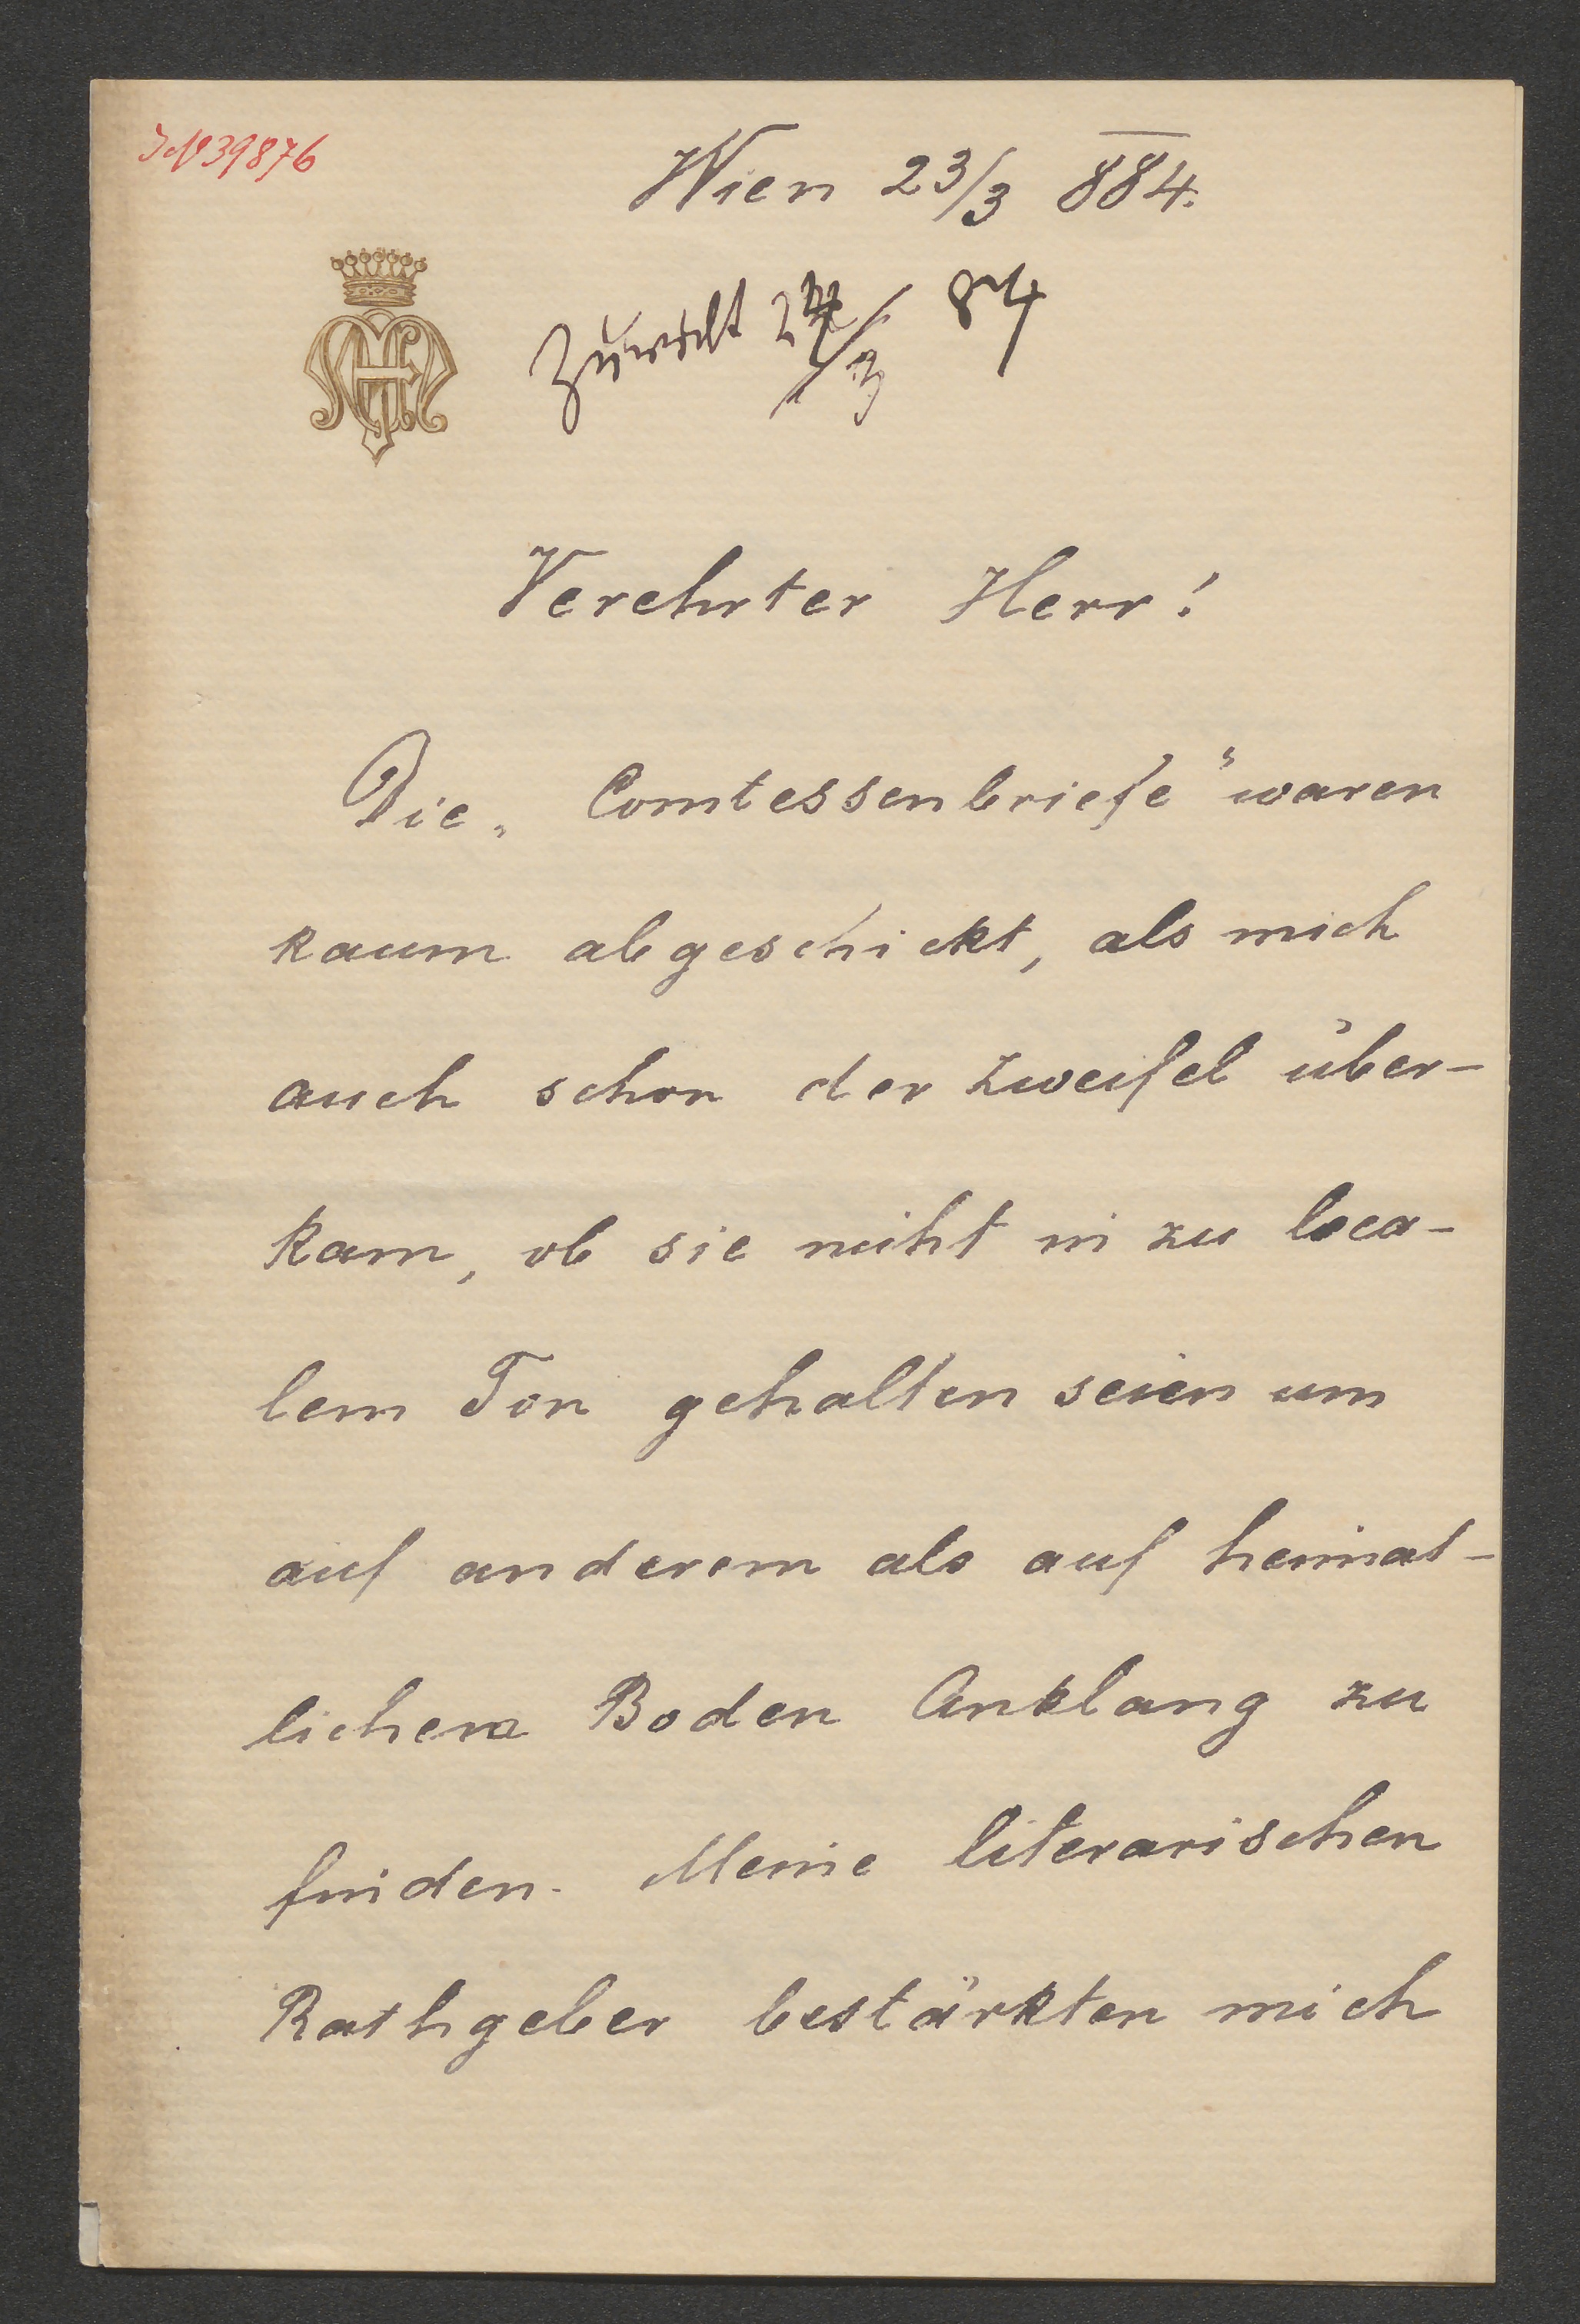 JN 39876
Wien 23/3 884.
24/3 84
Verehrter Herr!
Die „Comtessenbriefe“ waren
kaum abgeschickt, als mich
auch schon der Zweifel über-
kam, ob sie nicht in zu loca-
lem Ton gehalten seien um
auf anderem als auf heimat-
lichem Boden Anklang zu
finden. Meine literarischen
Rathgeber bestärkten mich